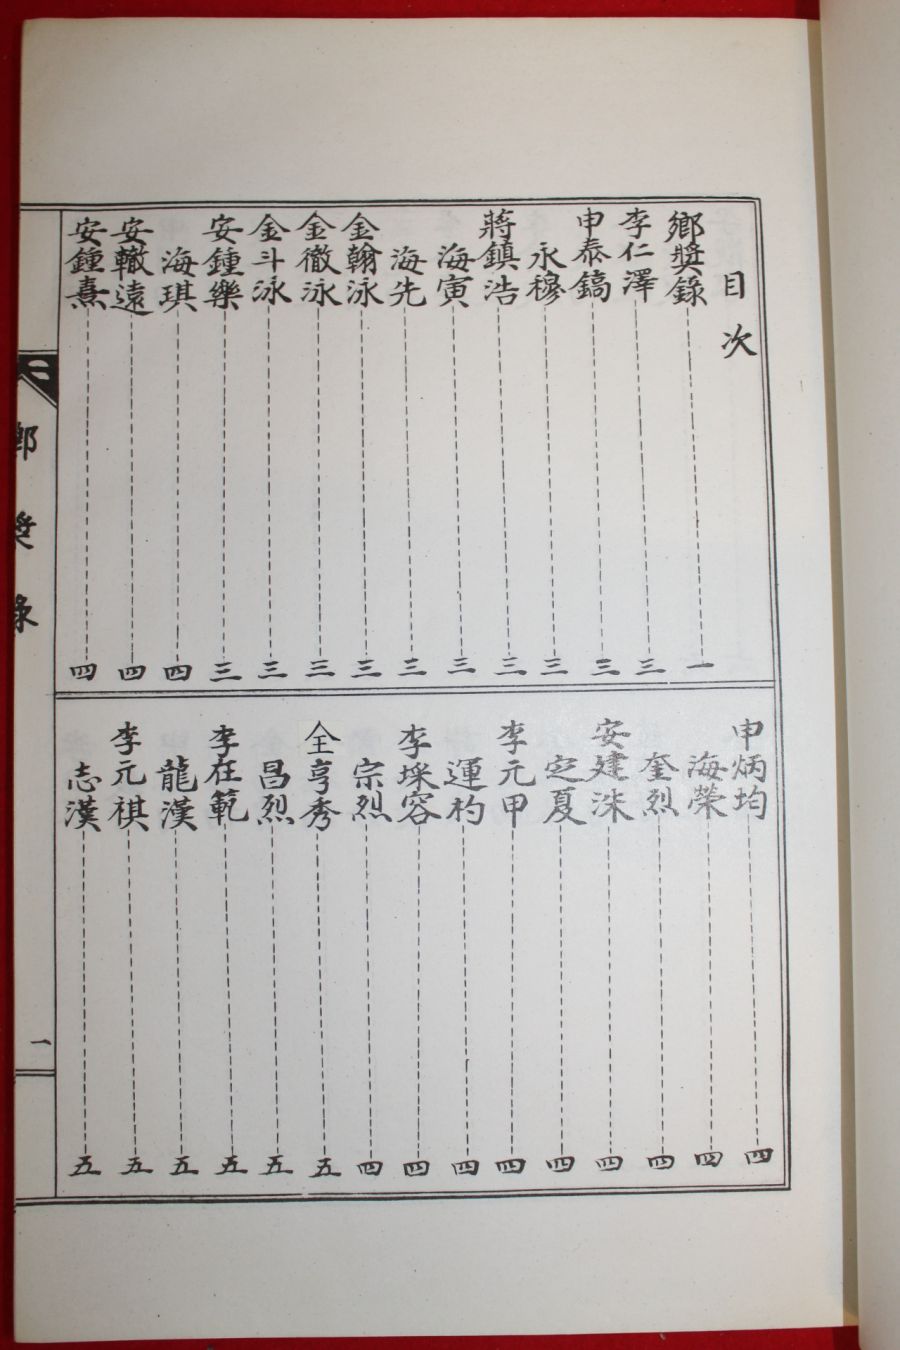 目次
鄉奬錄 一
李仁澤 三
申泰鎬 三
永穆 三
蔣鎮浩 三
海寅 三
海先 三
金翰泳 三
金徹泳 三
金斗泳 三
安鍾樂 三
海琪 四
安轍遠 四
安鍾熹 四
申炳均 四
海榮 四
奎烈 四
安建洙 四
定夏 四
李元甲 四
運杓 四
李埰容 四
宗烈 四
全亨秀 五
昌烈 五
李在範 五
龍漢 五
李元祺 五
志漢 五
鄉奬錄
一